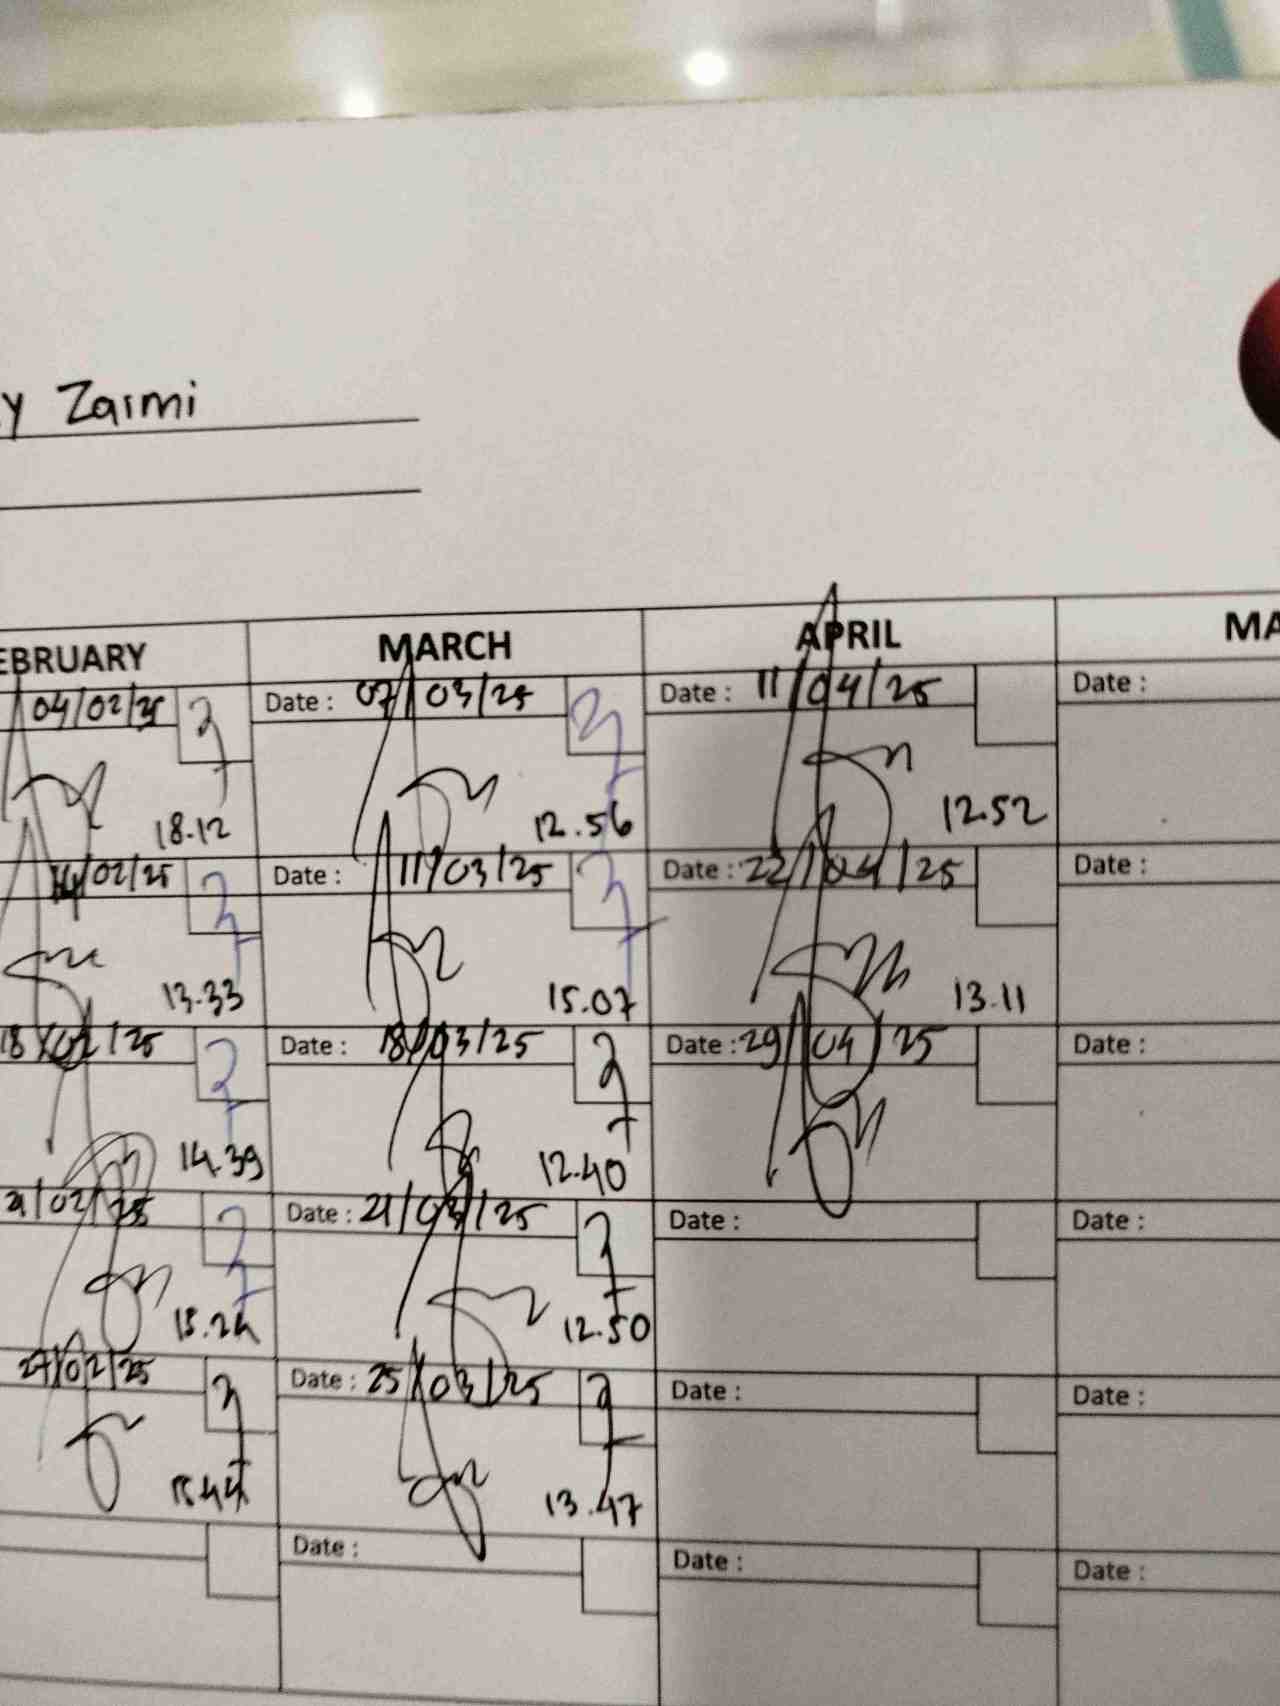 y Zarmi
EBRUARY MARCH APRIL MA
04/02/25 Date : 07/03/25 Date : 11/04/25 Date :
18.12 12.56 12.52
14/02/25 Date : 11/03/25 Date : 22/04/25 Date :
13.33 15.07 13.11
18/02/25 Date : 18/03/25 Date : 29/04/25 Date :
14.39 12.40
21/02/25 Date : 21/03/25 Date : Date :
15.24 12.50
27/02/25 Date : 25/03/25 Date : Date :
15.44 13.47
Date : Date : Date :